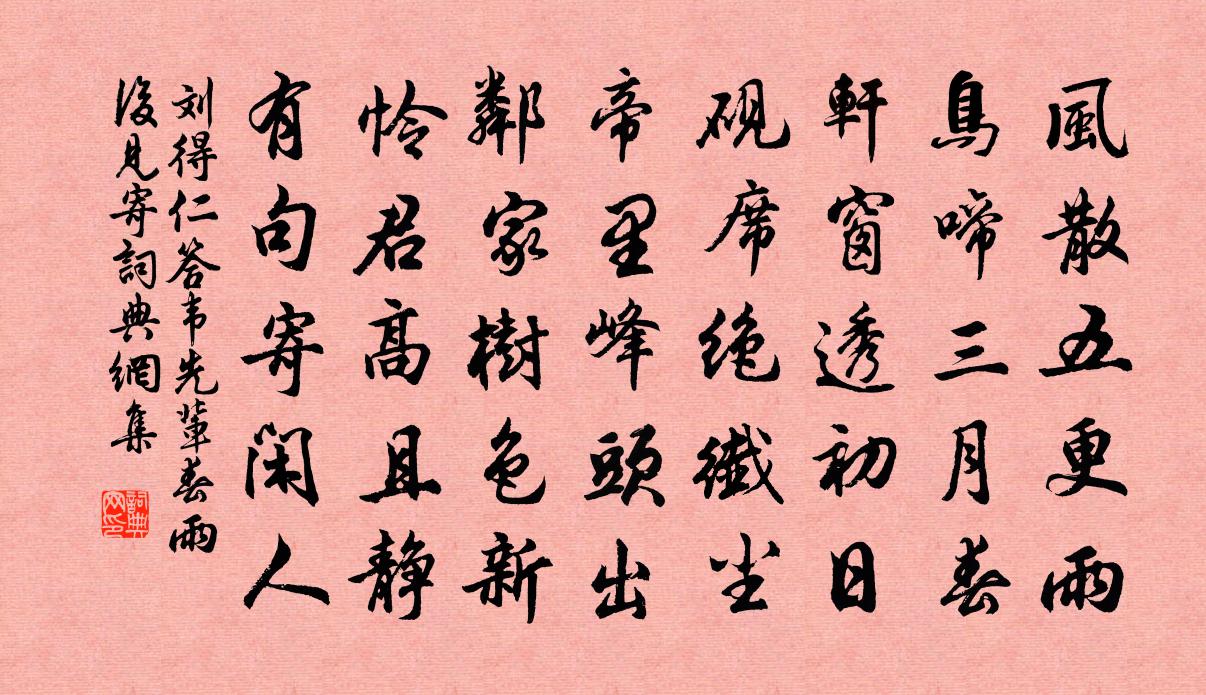 風散五更雨
鳥啼三月春
軒窗透初日
硯席絶纖尘
帝里峰頭出
鄰家樹色新
怜君高且静
有句寄閑人
刘得仁答韦先輩春雨
後見寄詞典網集
詞典网印